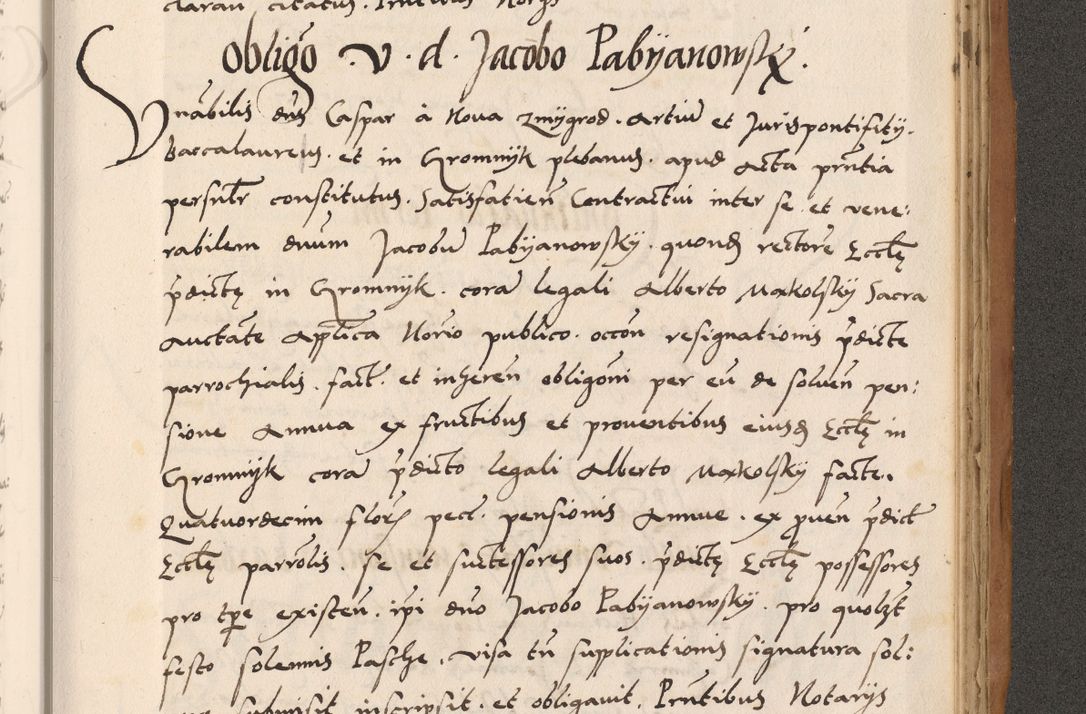 claran citatus. Pntibus Norijs
Obligo v. d. Jacobo Pabyanowsky.
Vnabilis dns Caspar à Nova Zmygrod. Artiu et Jurispontifitij.
Baccalaureus. et in Gromnyk plebanus. apud Acta pntia
persnlr constitutus. Satisfatien Contractui inter se et vene:
rabilem dnum Jacobu Pabyanowsky. quond rectore Eccle
pdicte in Gromnyk. cora legali Alberto Makolsky Sacra
Auctate Applica Norio publico. occon resignationis pdicte
parrochialis. fact. et inheren obligoni per eu de solven pen:
sione Annua ex fructibus et proventibus eiusd Eccle in
Gromnyk cora pdicto legali Alberto Makolsky facte.
Quatuordecim flor pecl. pensionis Annue. ex proven pdict
Eccle parrolis. se et suctessores suos. pdicte Eccle possessores
pro tpe existen. ipi dno Jacobo Pabyanowsky. pro quolzt
festo solemnis Pasche. visa tn supplicationis signatura sol:
submisit inscripsit. et obligavit. Pntibus Notarijs